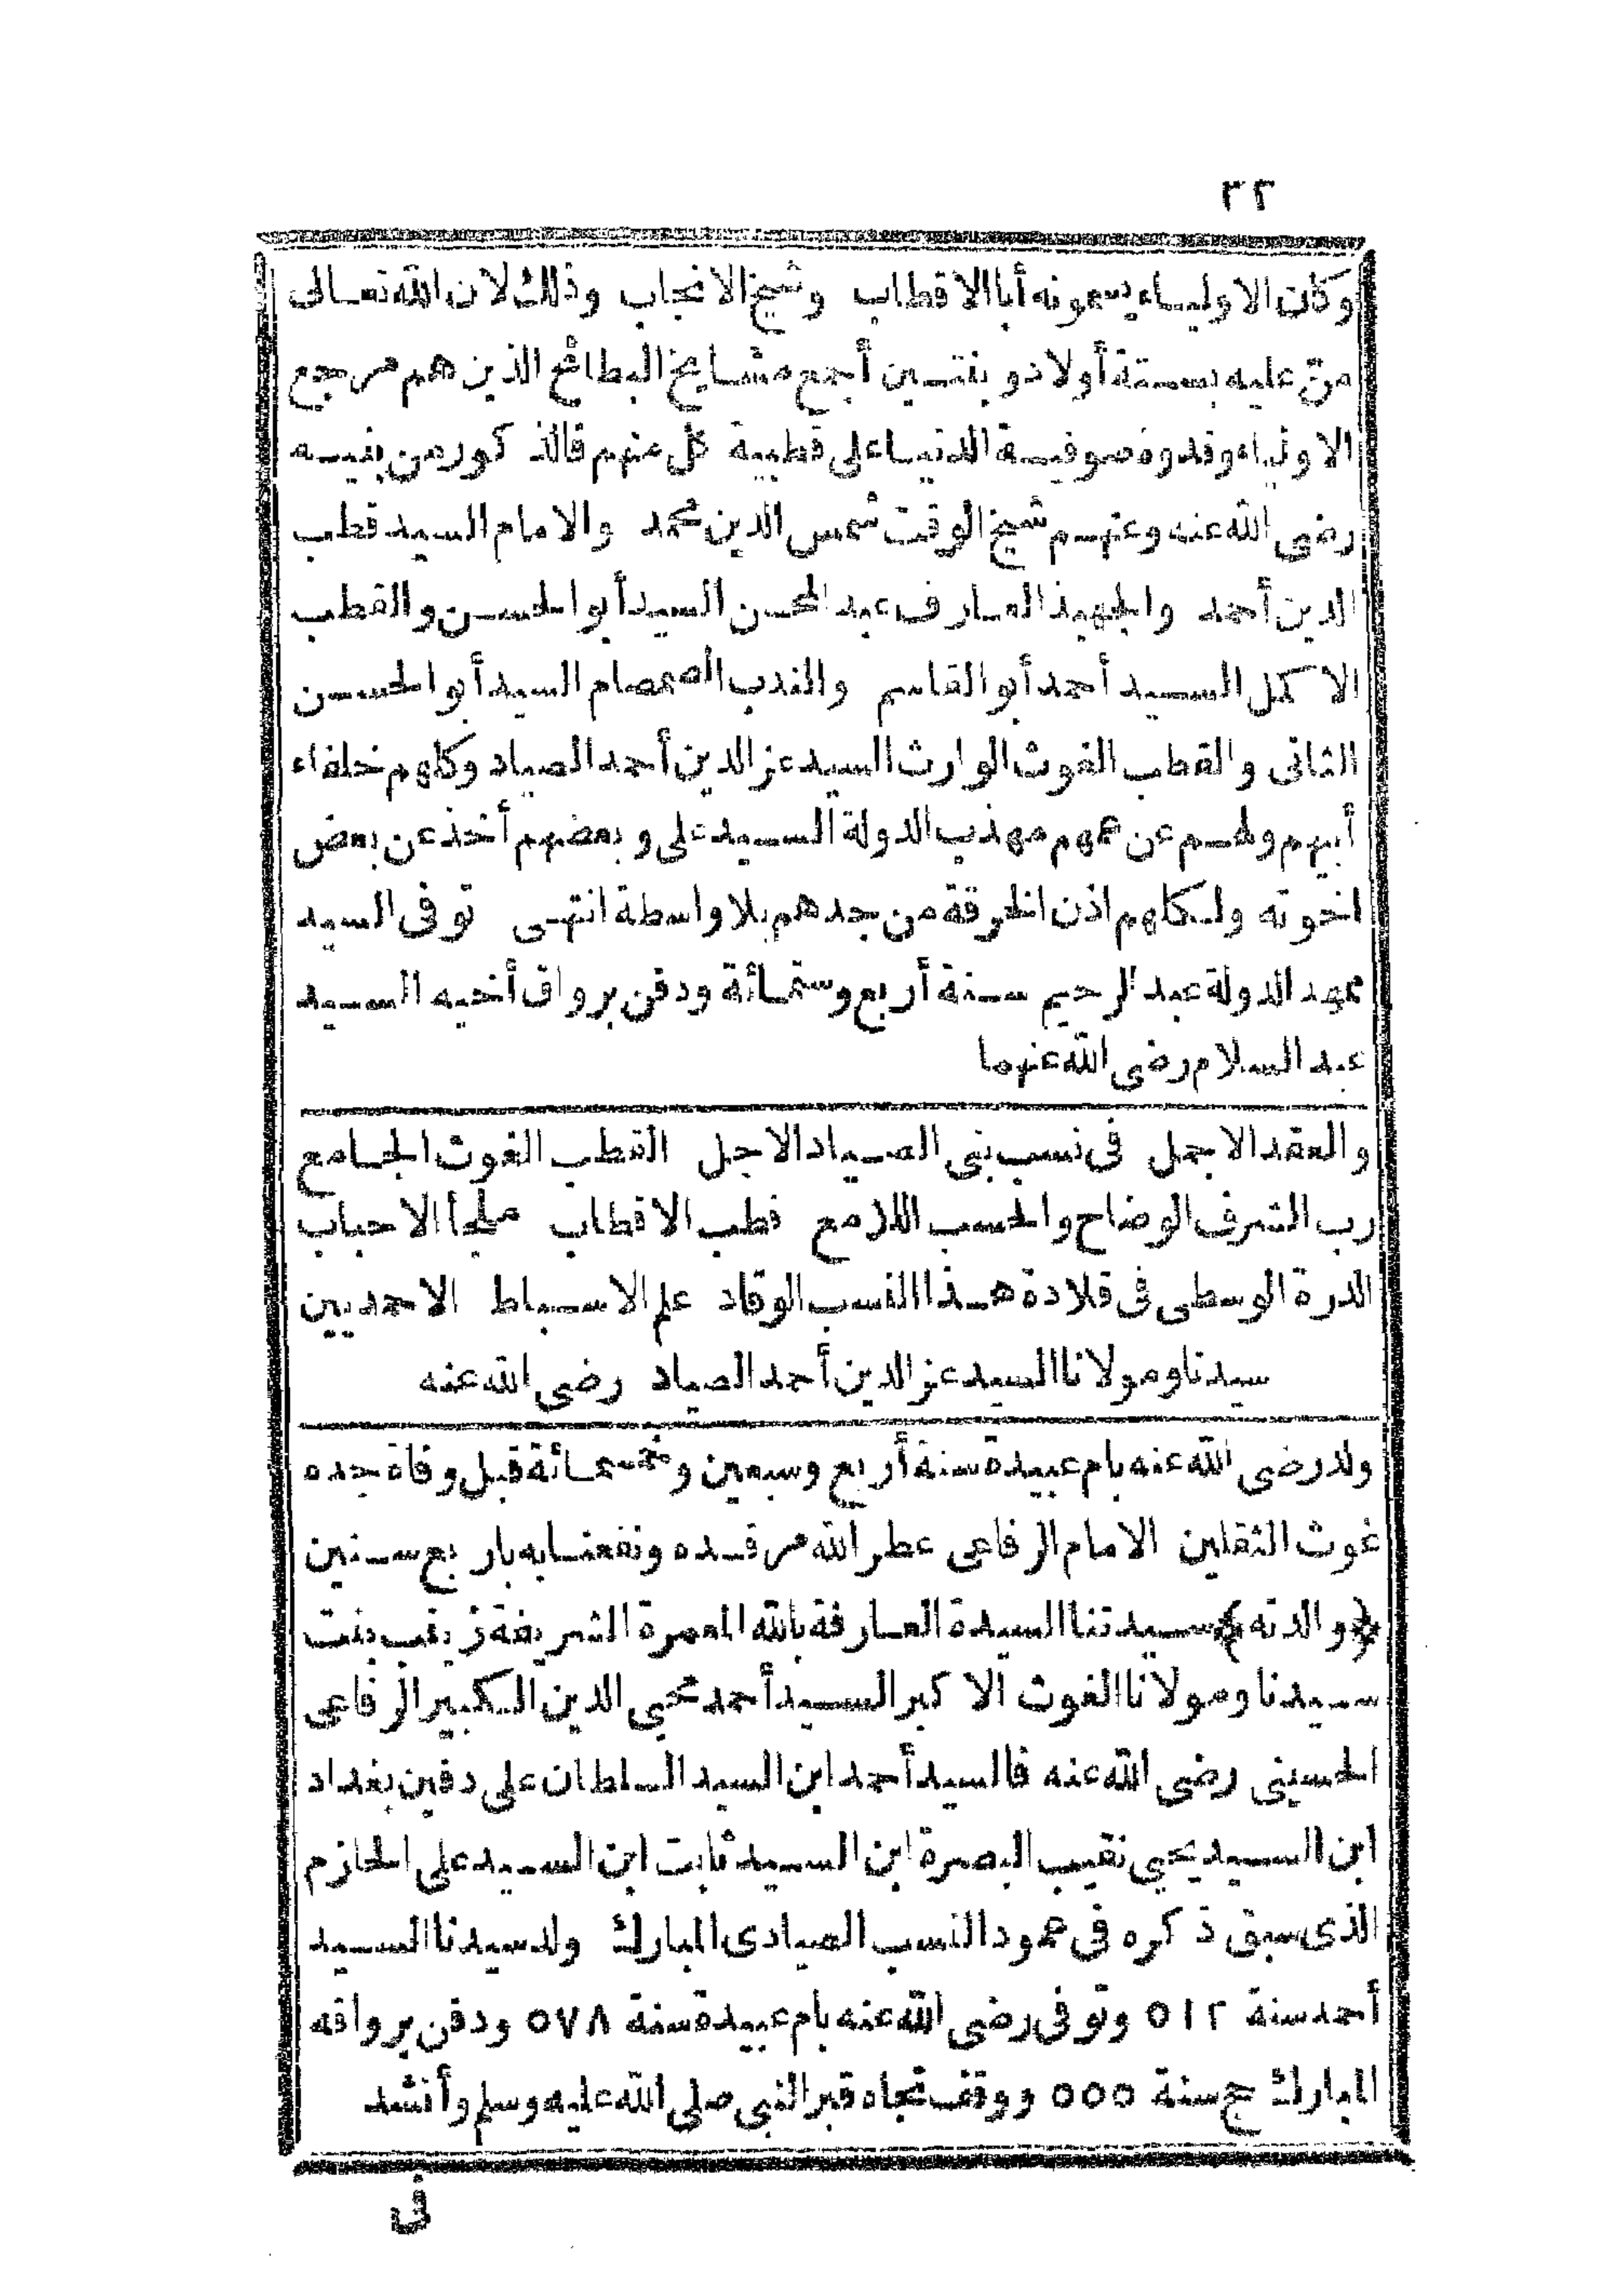 ٣٢
وكان الاولياء يسمونه أبا الاقطاب وشيخ الانجاب وذلك لان الله تعالى
من عليه بستة أولاد وبنتين أجمع مشايخ البطائح الذين هم مرجع
الاولياء وقدوة صوفية الدنيا على قطبية كل منهم فالذكور من بنيه
رضى الله عنه وعنهم شيخ الوقت شمس الدين محمد والامام السيد قطب
الدين أحمد والجهبذ العارف عبد المحسن السيد أبو الحسن والقطب
الاكمل السيد أحمد أبو القاسم والندب الصمصام السيد أبو الحسن
الثانى والقطب الغوث الوارث السيد عز الدين أحمد الصياد وكلهم خلفاء
أبيهم ولهم عن عمهم مهذب الدولة السيد على وبعضهم أخذ عن بعض
اخوته ولكلهم اذن الخرقة من جدهم بلا واسطة انتهى توفى السيد
ممهد الدولة عبد الرحيم سنة أربع وستمائة ودفن برواق أخيه السيد
عبد السلام رضى الله عنهما
والعقد الاجمل فى نسب بنى الصياد الاجل القطب الغوث الجامع
رب الشرف الوضاح والحسب اللامع قطب الاقطاب ملجأ الاحباب
الدرة الوسطى فى قلادة هذا النسب الوقاد علم الاسباط الاحمديين
سيدنا ومولانا السيد عز الدين أحمد الصياد رضى الله عنه
ولد رضى الله عنه بام عبيدة سنة أربع وسبعين وخمسمائة قبل وفاة جده
غوث الثقلين الامام الرفاعى عطر الله مرقده ونفعنا به باربع سنين
﴿والدته﴾ سيدتنا السيدة العارفة بالله المعمرة الشريفة زينب بنت
سيدنا ومولانا الغوث الاكبر السيد أحمد محيى الدين الكبير الرفاعى
الحسينى رضى الله عنه فالسيد أحمد ابن السيد السلطان على دفين بغداد
ابن السيد يحيى نقيب البصرة ابن السيد ثابت ابن السيد على الحازم
الذى سبق ذكره فى عمود النسب الصيادى المبارك ولد سيدنا السيد
أحمد سنة ٥١٢ وتوفى رضى الله عنه بام عبيدة سنة ٥٧٨ ودفن برواقه
المبارك حج سنة ٥٥٥ ووقف تجاه قبر النبى صلى الله عليه وسلم وأنشد
فى